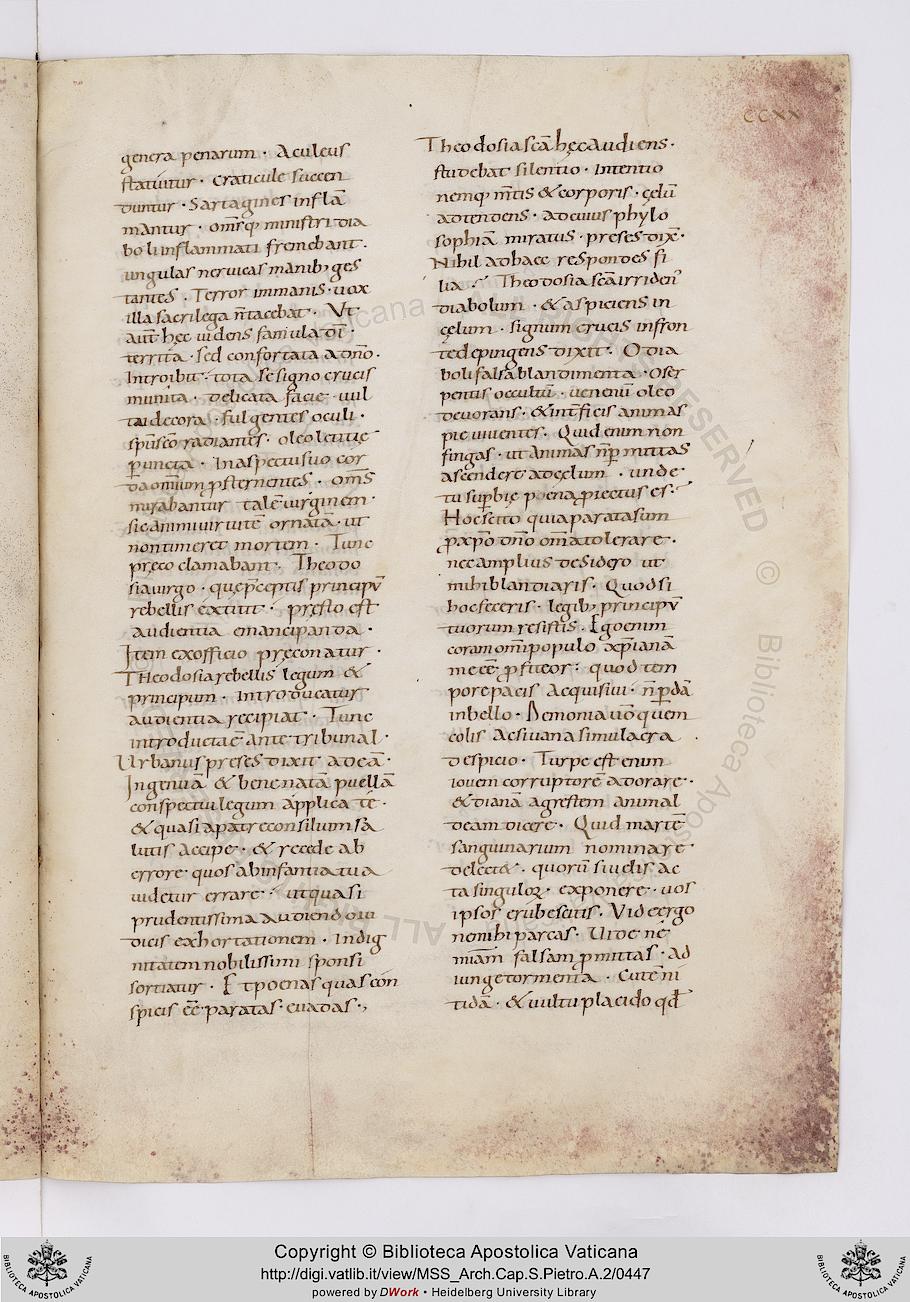 CCXX
genera penarum · Aculeus
statuitur · Craticule succen
duntur · Sartagines inflā
mantur · om̄sq; ministri dia
boli inflammati fremebant ·
ungulas nervicas manib; ges
tantes · Terror immanis · vox
illa sacrilega n̄ tacebat · Ut
aut̄ hec videns famula dī ·
territa · sed confortata a dn̄o ·
Introibit · tota se signo crucis
munita · delicata facie · vul
tu decora · fulgentes oculi ·
sp̄u sc̄o radiantes · oleo letitię
p̄uncta · In aspectu suo cor
da omnium p̱sternentes · om̄s
mirabantur talē virginem ·
sic animi virtutē ornatā · ut
non timeret mortem · Tunc
pręco clamabant · Theodo
sia virgo · quę p̄ceptis principū
rebellis extitit · presto est
audientia emancipanda ·
Item ex officio pręconatur ·
Theodosia rebellis legum &
principum · Introducatur
audientia recipiat · Tunc
introducta ē ante tribunal ·
Urbanus preses dixit ad eā ·
Ingenuā & bene natā puellā
conspectui legum applica te ·
& quasi a patre consilium sā
lutis accipe · & recede ab
errore quos ab infantia tua
videtur errare · ut quasi
prudentissima audiendo iu
dicis exhortationem · Indig
nitatem nobilissimi sponsi
sortiatur · Et poenas quas con
spicis eē paratas evadas ·,
Theodosia sc̄a hęc audiens ·
studebat silentio · Intentio
nemq; m̄tis & corporis · cęlū
ad tendens · ad cuius phylo
sophiā miratus · preses dix̄ ·
Nihil ad haec respondes fi
lia · Theodosia sc̄a irriden̄
diabolum · & aspiciens in
cęlum · signum crucis in fron
te depingens dixit · O dia
boli falsa blandimenta · O ser
pentis occultū · venenū oleo
devorans · & int̄ficis animas
pie viventes · Quid enim non
fingas · ut animas n̄ p̱mittas
ascendere ad cęlum · unde ·
tu sup̱bię poena p̱iectus es ·
Hoc scito quia parata sum
p̱ xp̄o dn̄o om̄a tolerare ·
nec amplius desidero ut
mihi blandiaris · Quod si
hoc feceris · legib; principū
tuorum resistis · Ego enim
coram omi populo xp̄ianā
me eē p̱fiteor : quod tem
pore pacis acquisivi · n̄ p̱dā
in bello · Demonia v̄o quem
colis Ac si vana simulacra
despicio · Turpe est enim
iovem corruptorē adorare ·
& dianā agrestem animal
deam dicere · Quid martē
sanguinarium nominare
delectā · quorū si vidis ac
ta singuloꝝ · exponere · vos
ipsos erubescitis · Vide ergo
ne mihi parcas · Ut de nē
miām falsam p̱mittas · Ad
iunge tormenta · Cutē ni
tidā · & vultu placido qd̄
Copyright © Biblioteca Apostolica Vaticana
http://digi.vatlib.it/view/MSS_Arch.Cap.S.Pietro.A.2/0447
powered by DWork • Heidelberg University Library